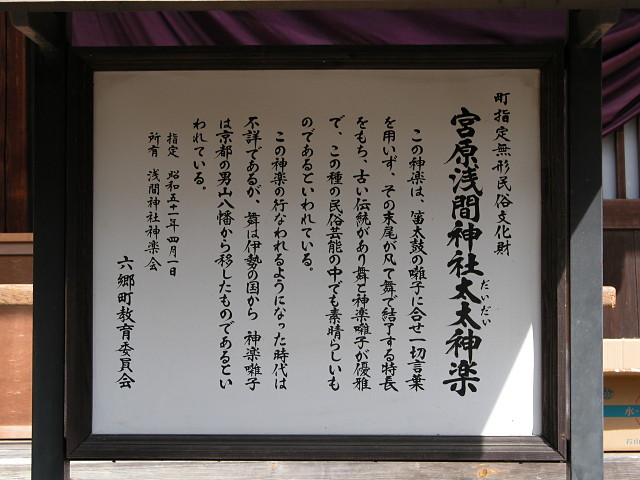 町指定無形民俗文化財
宮原浅間神社太太神楽
だいだい
この神楽は、笛太鼓の囃子に合せ一切言葉
を用いず、その末尾が凡て舞で結了する特長
をもち、古い伝統があり舞と神楽囃子が優雅
で、この種の民俗芸能の中でも素晴らしいも
のであるといわれている。
この神楽の行なわれるようになった時代は
不詳であるが、舞は伊勢の国から 神楽囃子
は京都の男山八幡から移したものであるとい
われている。
指定 昭和五十一年四月一日
所有 浅間神社神楽会
六郷町教育委員会
水